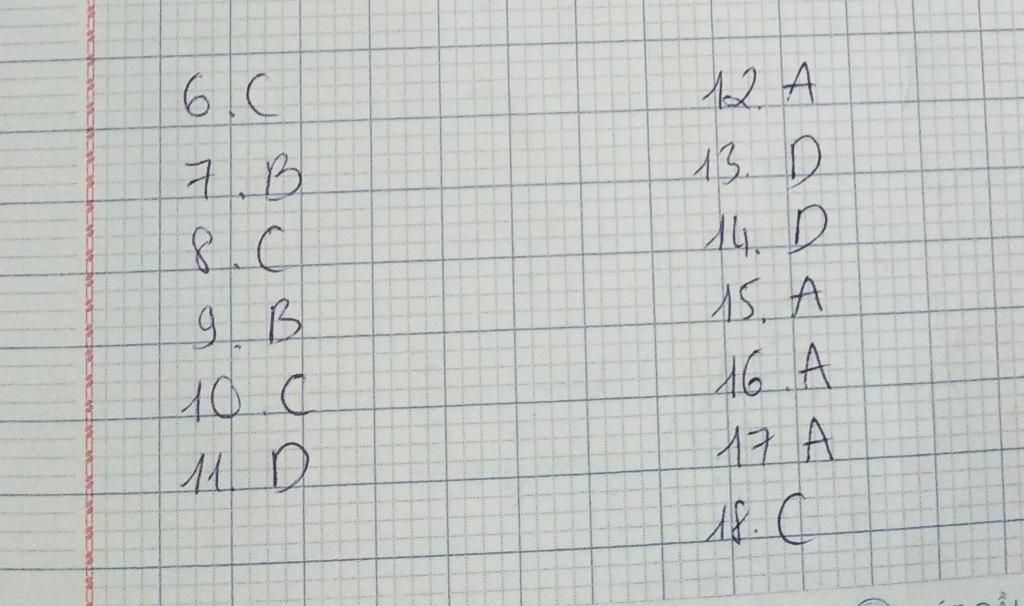 6. C
7. B
8. C
9. B
10. C
11. D
12. A
13. D
14. D
15. A
16. A
17 A
18. C